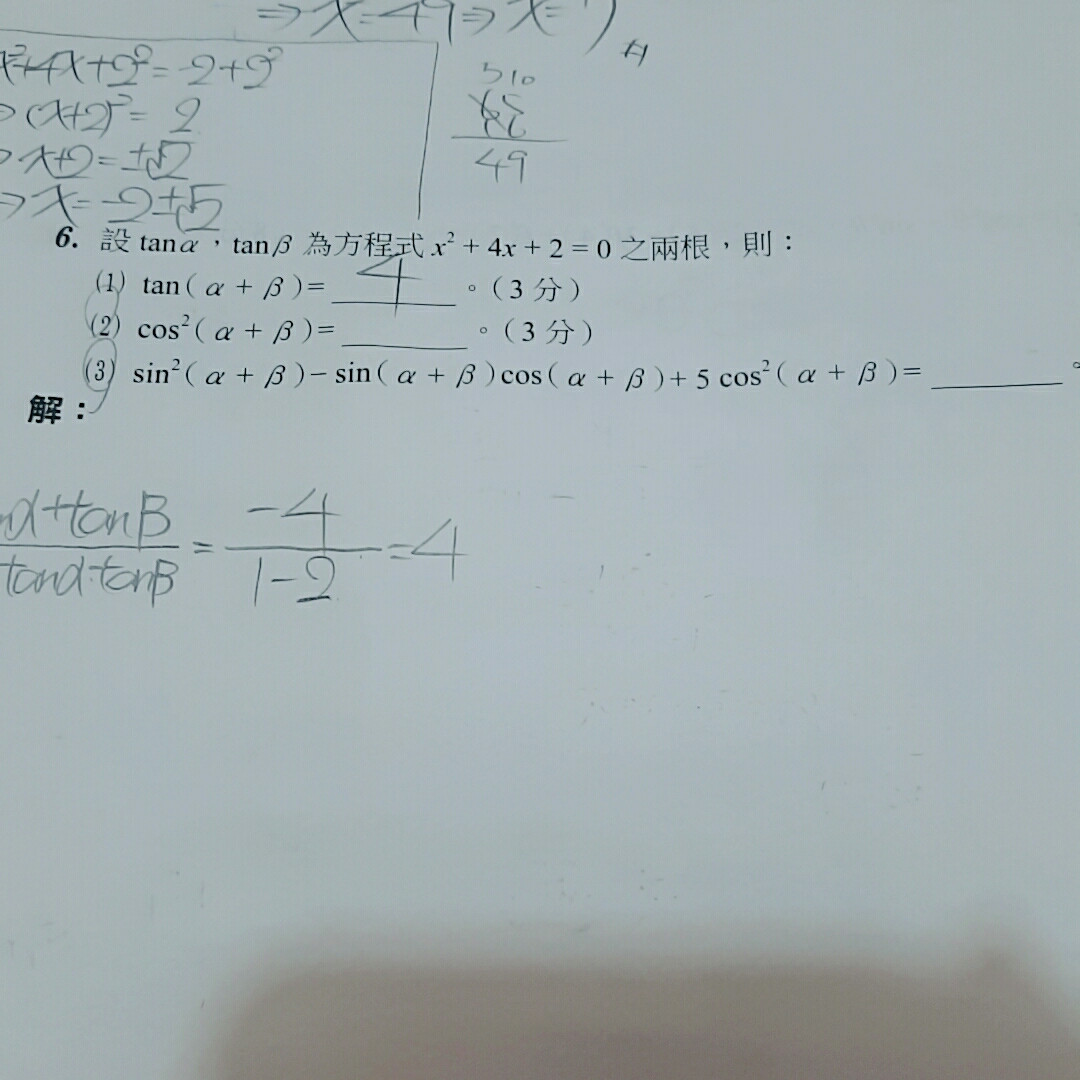 ⇒x=49⇒x=7
x²+4x+2²=-2+2²
⇒(x+2)²=2
⇒x+2=±√2
⇒x=-2±√2
510
49
6. 設 tanα，tanβ 為方程式 x² + 4x + 2 = 0 之兩根，則：
(1) tan( α + β )= 4 。（3 分）
(2) cos²( α + β )= ______ 。（3 分）
(3) sin²( α + β )− sin( α + β )cos( α + β )+ 5 cos²( α + β )= ______ 。
解：
tanβ = -4 = 4
tanα·tanβ 1-2